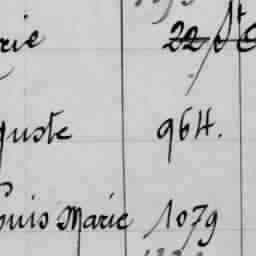 rie 22
guste 964.
ouis Marie 1079